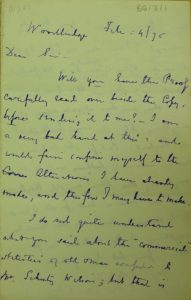 Woodbridge Feb: 4/76
Dear Sir,
Will you have the Proof
carefully read over with the Copy,
before sending it to me? I am
a very bad hand at this: and
would fain confine myself to the
few Alterations I have already
make, and the few I may have to make
I do not quite understand
what you said about the "commercial"
of old Omar compared to
Mr. Schutz Wilson; but that is